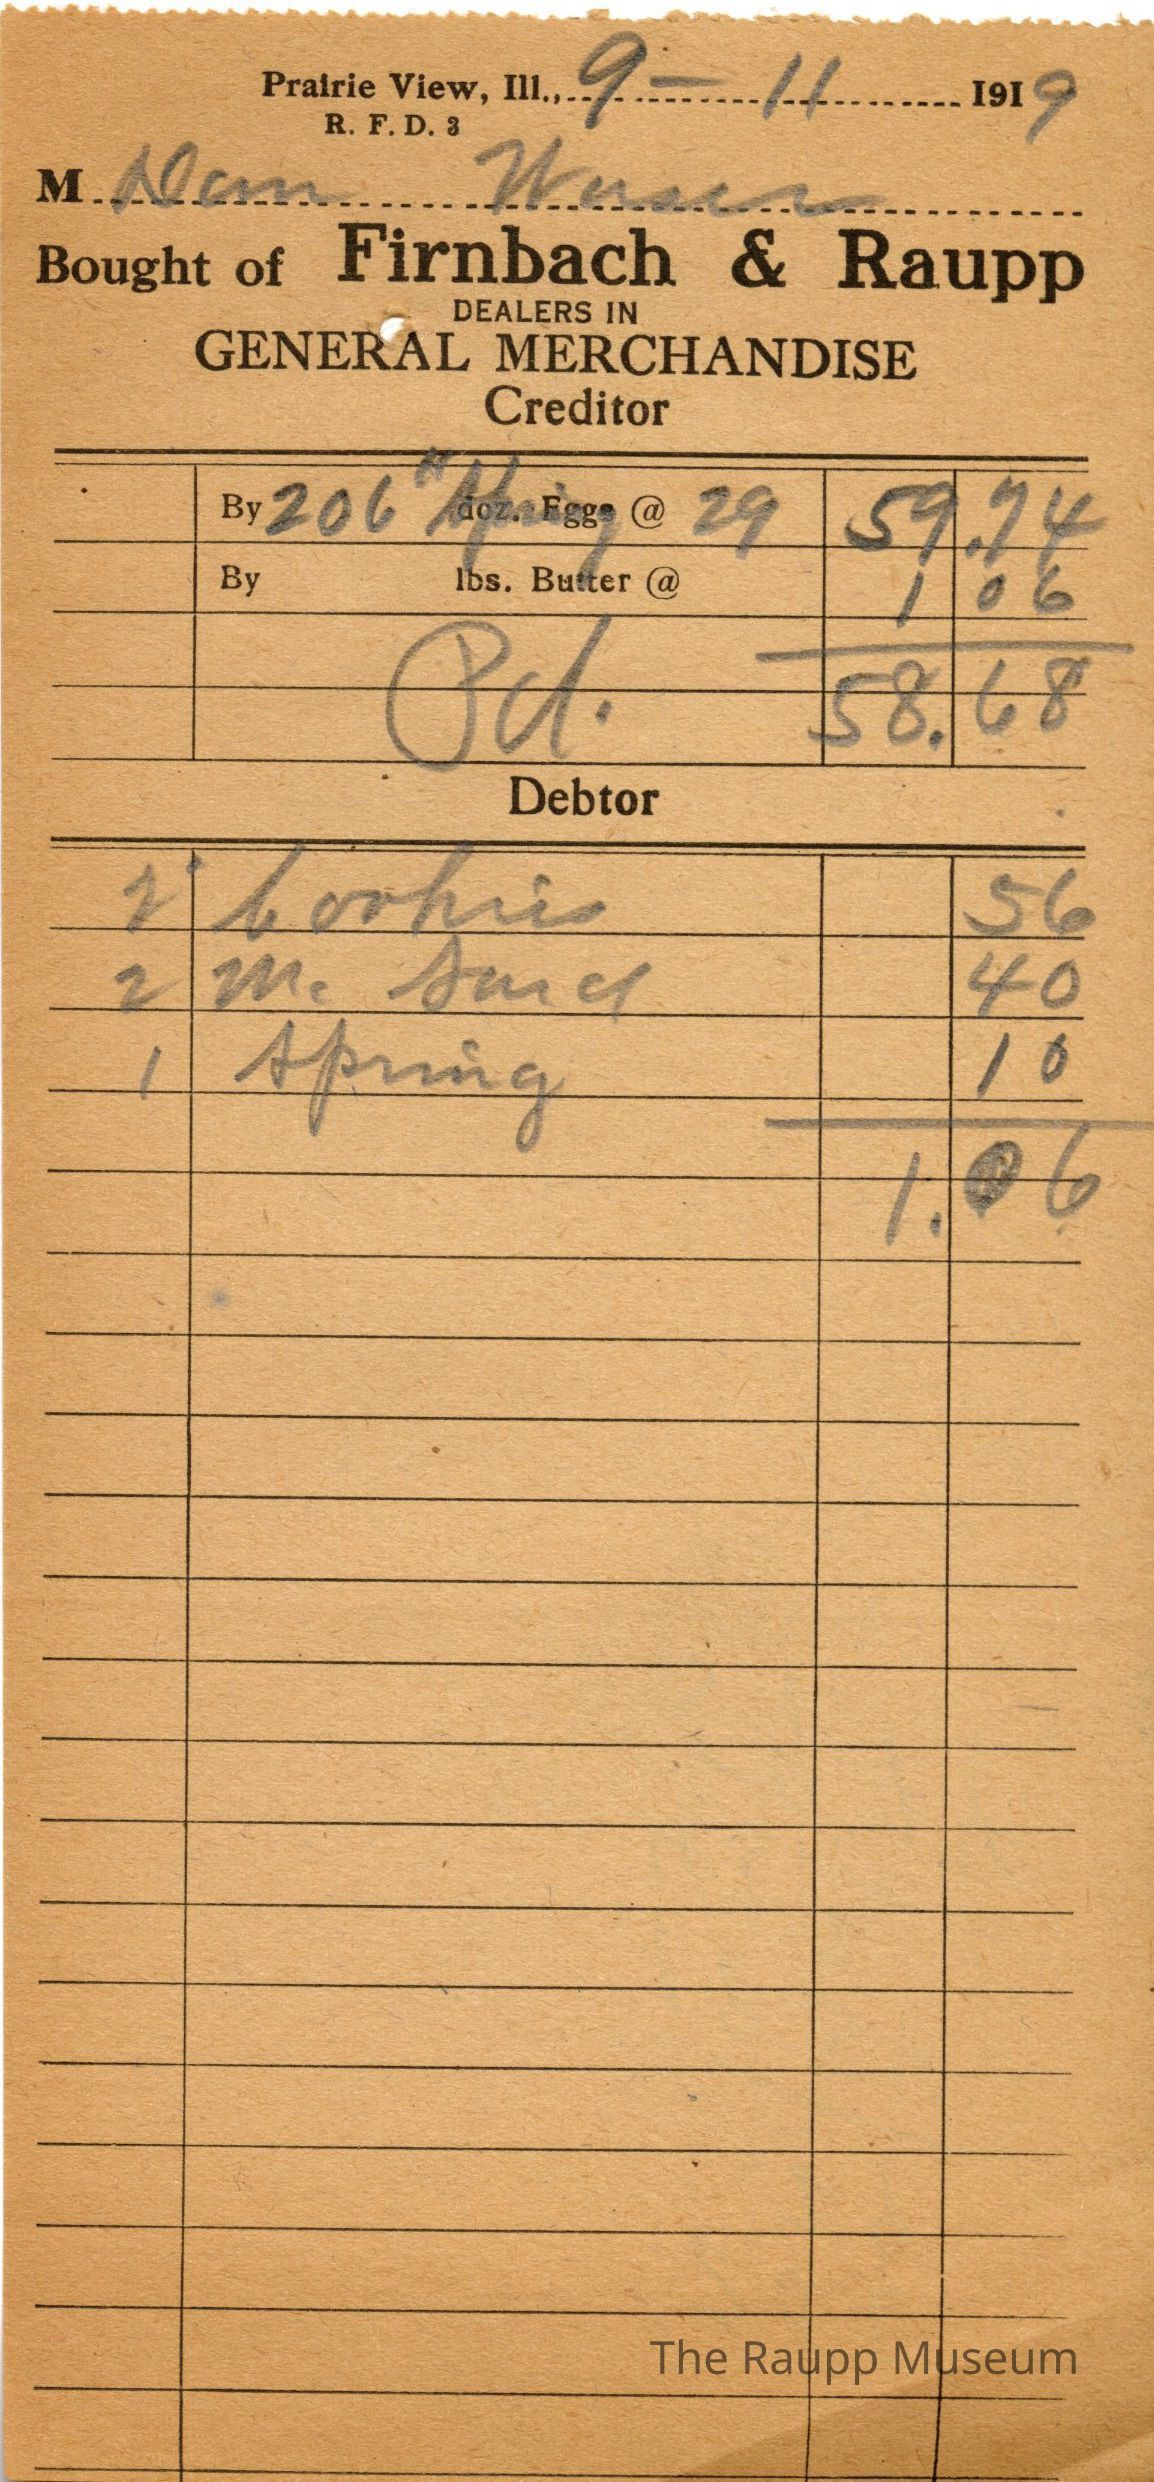 Prairie View, Ill., 9 - 11 1919
R. F. D. 3
M Dan
Bought of Firnbach & Raupp
DEALERS IN
GENERAL MERCHANDISE
Creditor
By 206 # Spring doz. Eggs @ 29 59.74
By lbs. Butter @ 1 06
Pd. 58.68
Debtor
2 Cookies 56
2 Mc 40
1 Spring 10
1.06
The Raupp Museum